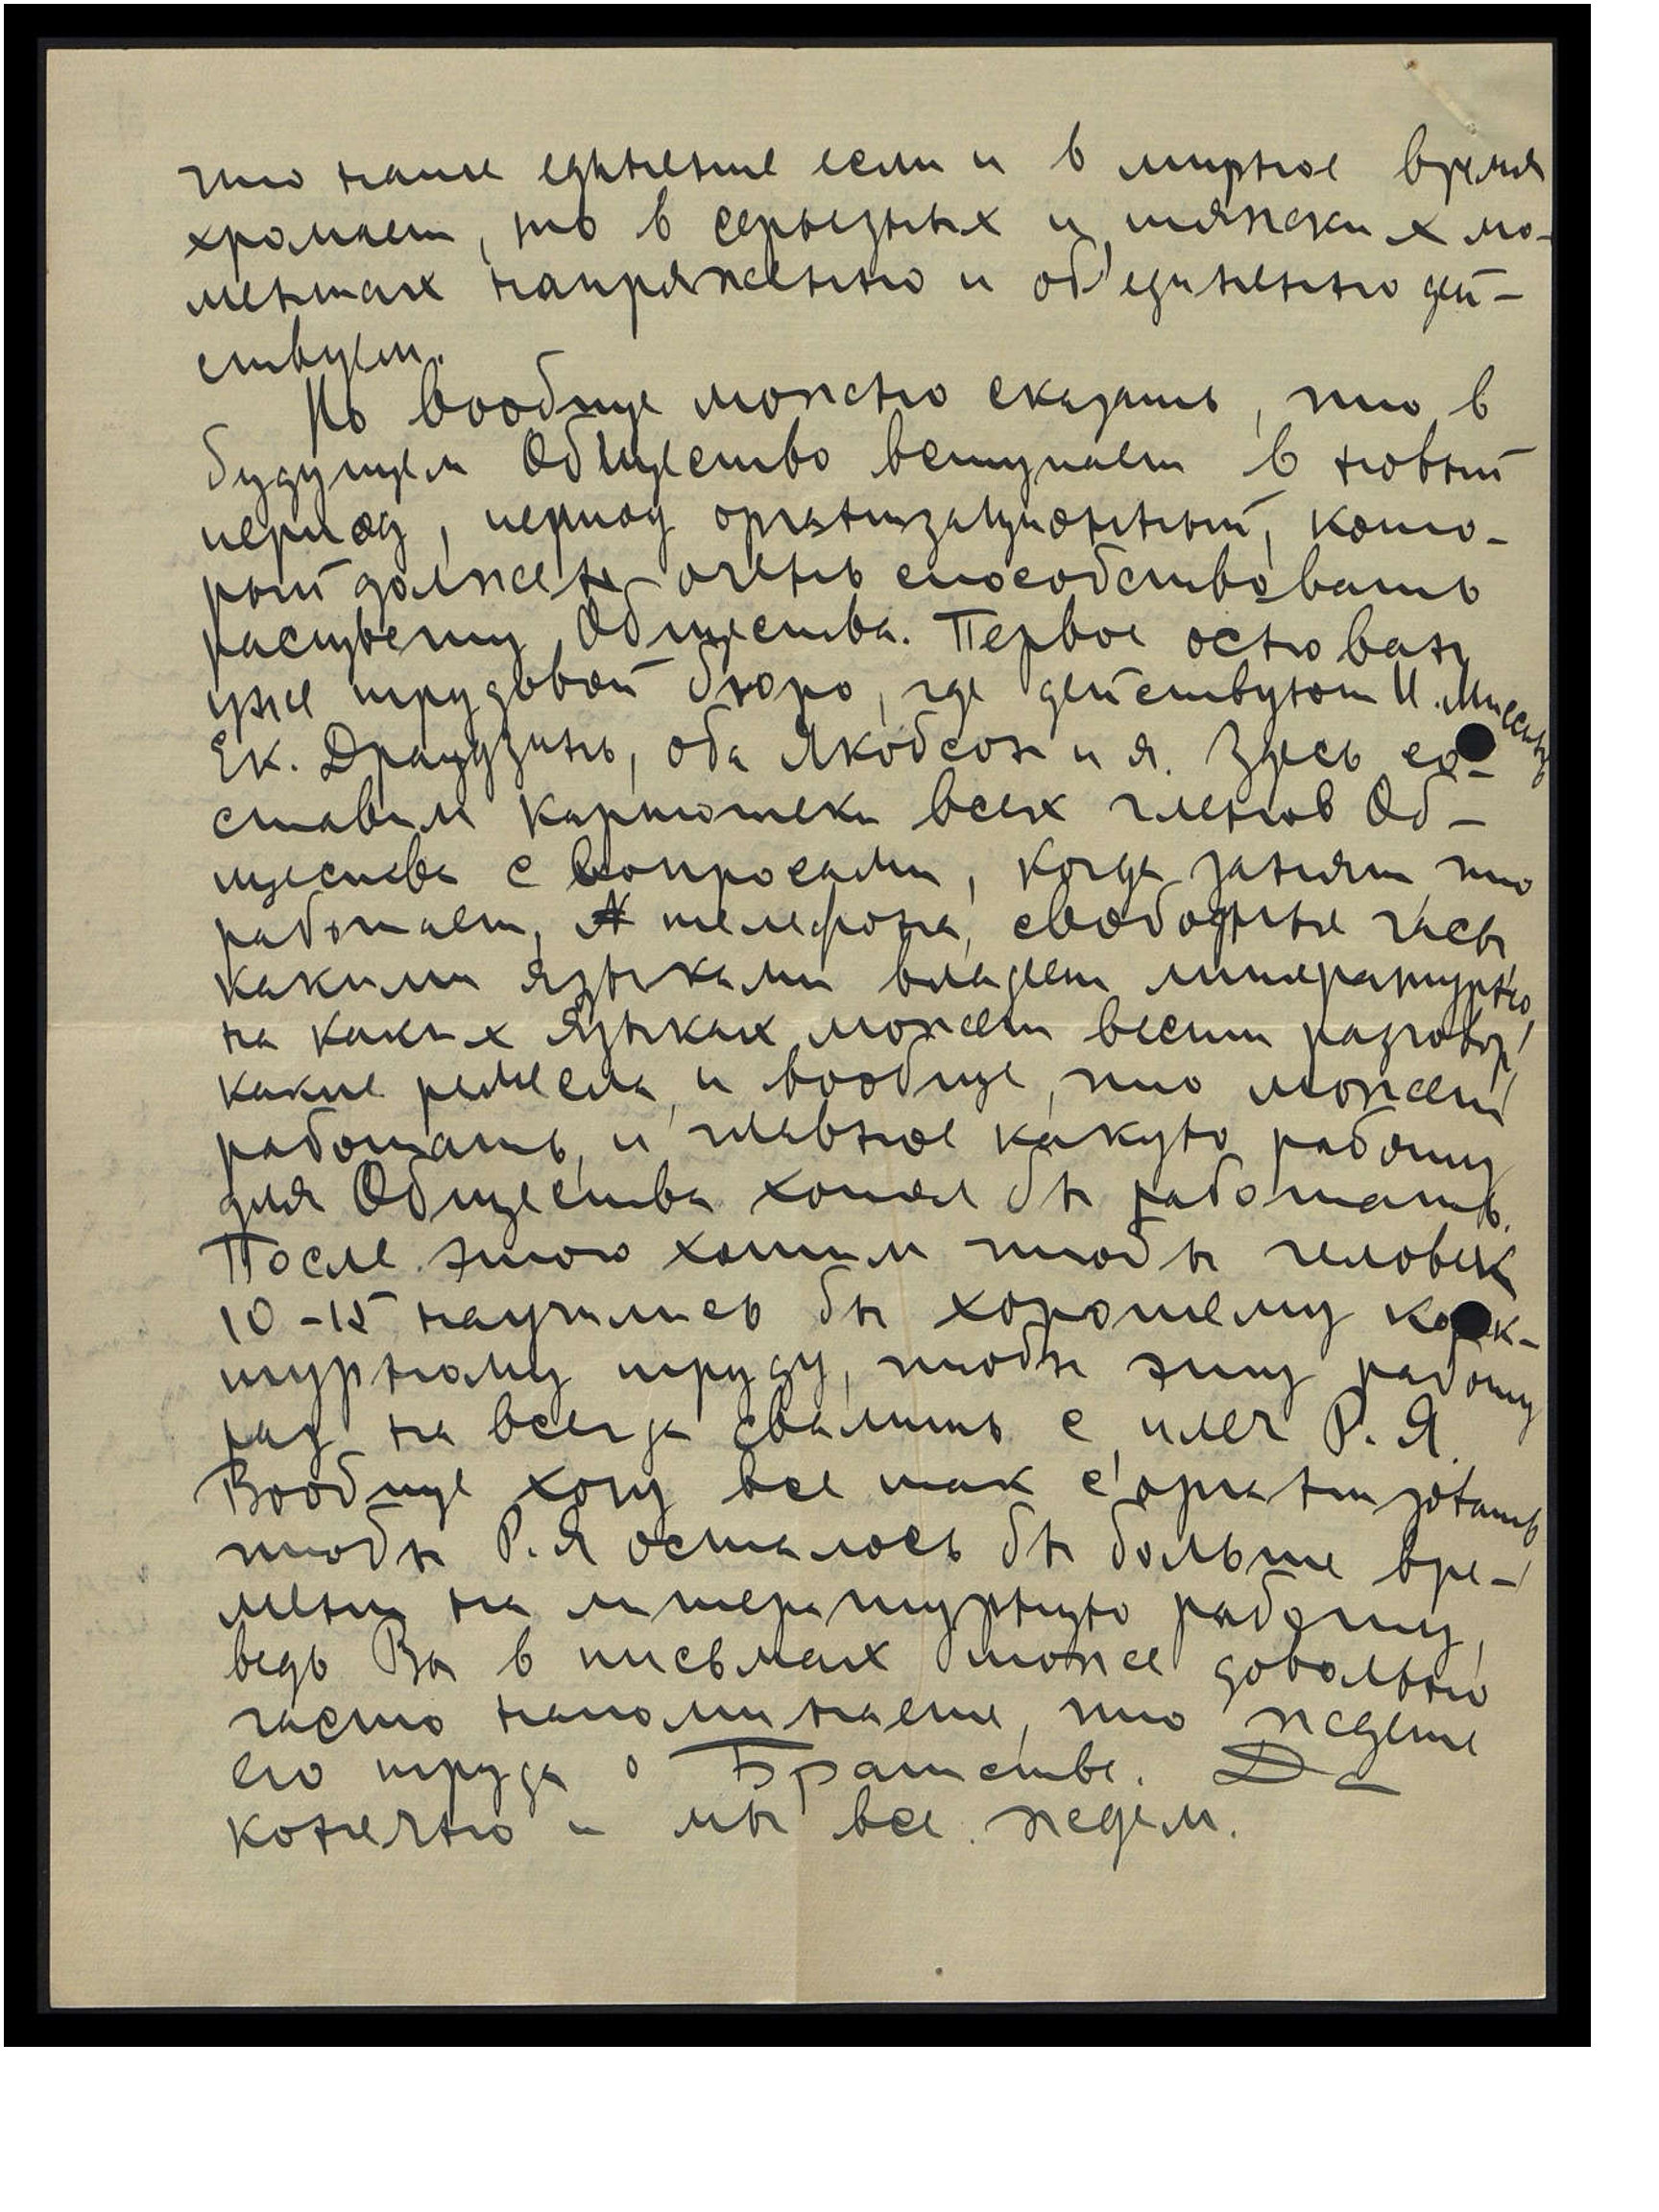 что наше единение если и в мирное время
хромает, то в серьезных и тяжских мо-
ментах напряженно и об'единенно дей-
ствуем.
Но вообще можно сказать, что в
будущем Общество вступает в новый
период, период организационный, кото-
рый должен очень способствовать
расцвету Общества. Первое основан
уже трудовой бюро, где действуют И. Мисинь
Ек. Драудзинь, оба Якобсон и я. Здесь со-
ставим картотеки всех членов Об-
щества с вопросами, когда занят что
работает, № телефона, свободные часы,
какими языками владеет литературно,
на каких языках может вести разговор,
какие ремесла, и вообще, что может
работать, и главное какую работу
для Общества хотел бы работать.
После этого хотим чтобы человек
10-15 научились бы хорошему корек-
турному труду, чтобы эту работу
раз на всегда свалить с плеч Р. Я.
Вообще хочу все так с'организовать
чтобы Р. Я осталось бы больше вре-
мени на литературную работу,
ведь Вы в письмах тоже довольно
часто напоминаете, что ждете
его труда о Братстве. Да
конечно и мы все ждем.